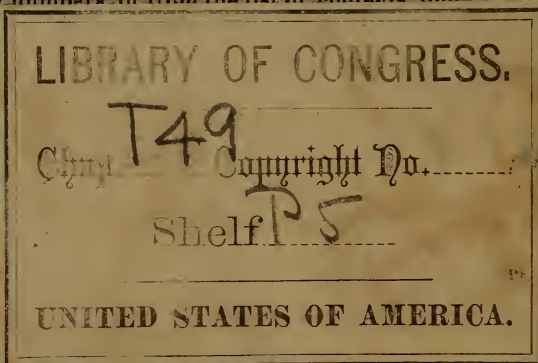 LIBRARY OF CONGRESS.
T49
Copyright No.
Shelf P5
UNITED STATES OF AMERICA.